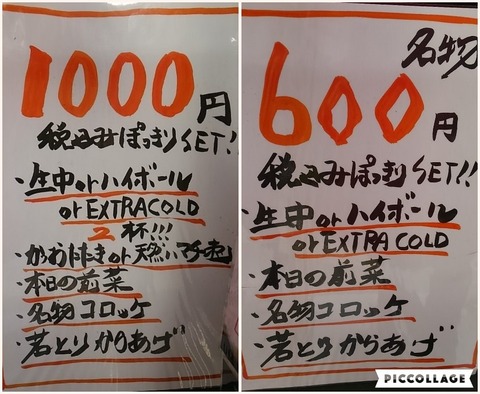 1000円
税込みぽっきりSET!
・生中orハイボール
orEXTRACOLD
2杯!!!
・かつおたたきor天然ハマチ売
・本日の前菜
・名物コロッケ
・若とりからあげ
名物
600円
税込みぽっきりSET!!
・生中orハイボール
orEXTRA COLD
・本日の前菜
・名物コロッケ
・若とりからあげ
PICCOLLAGE